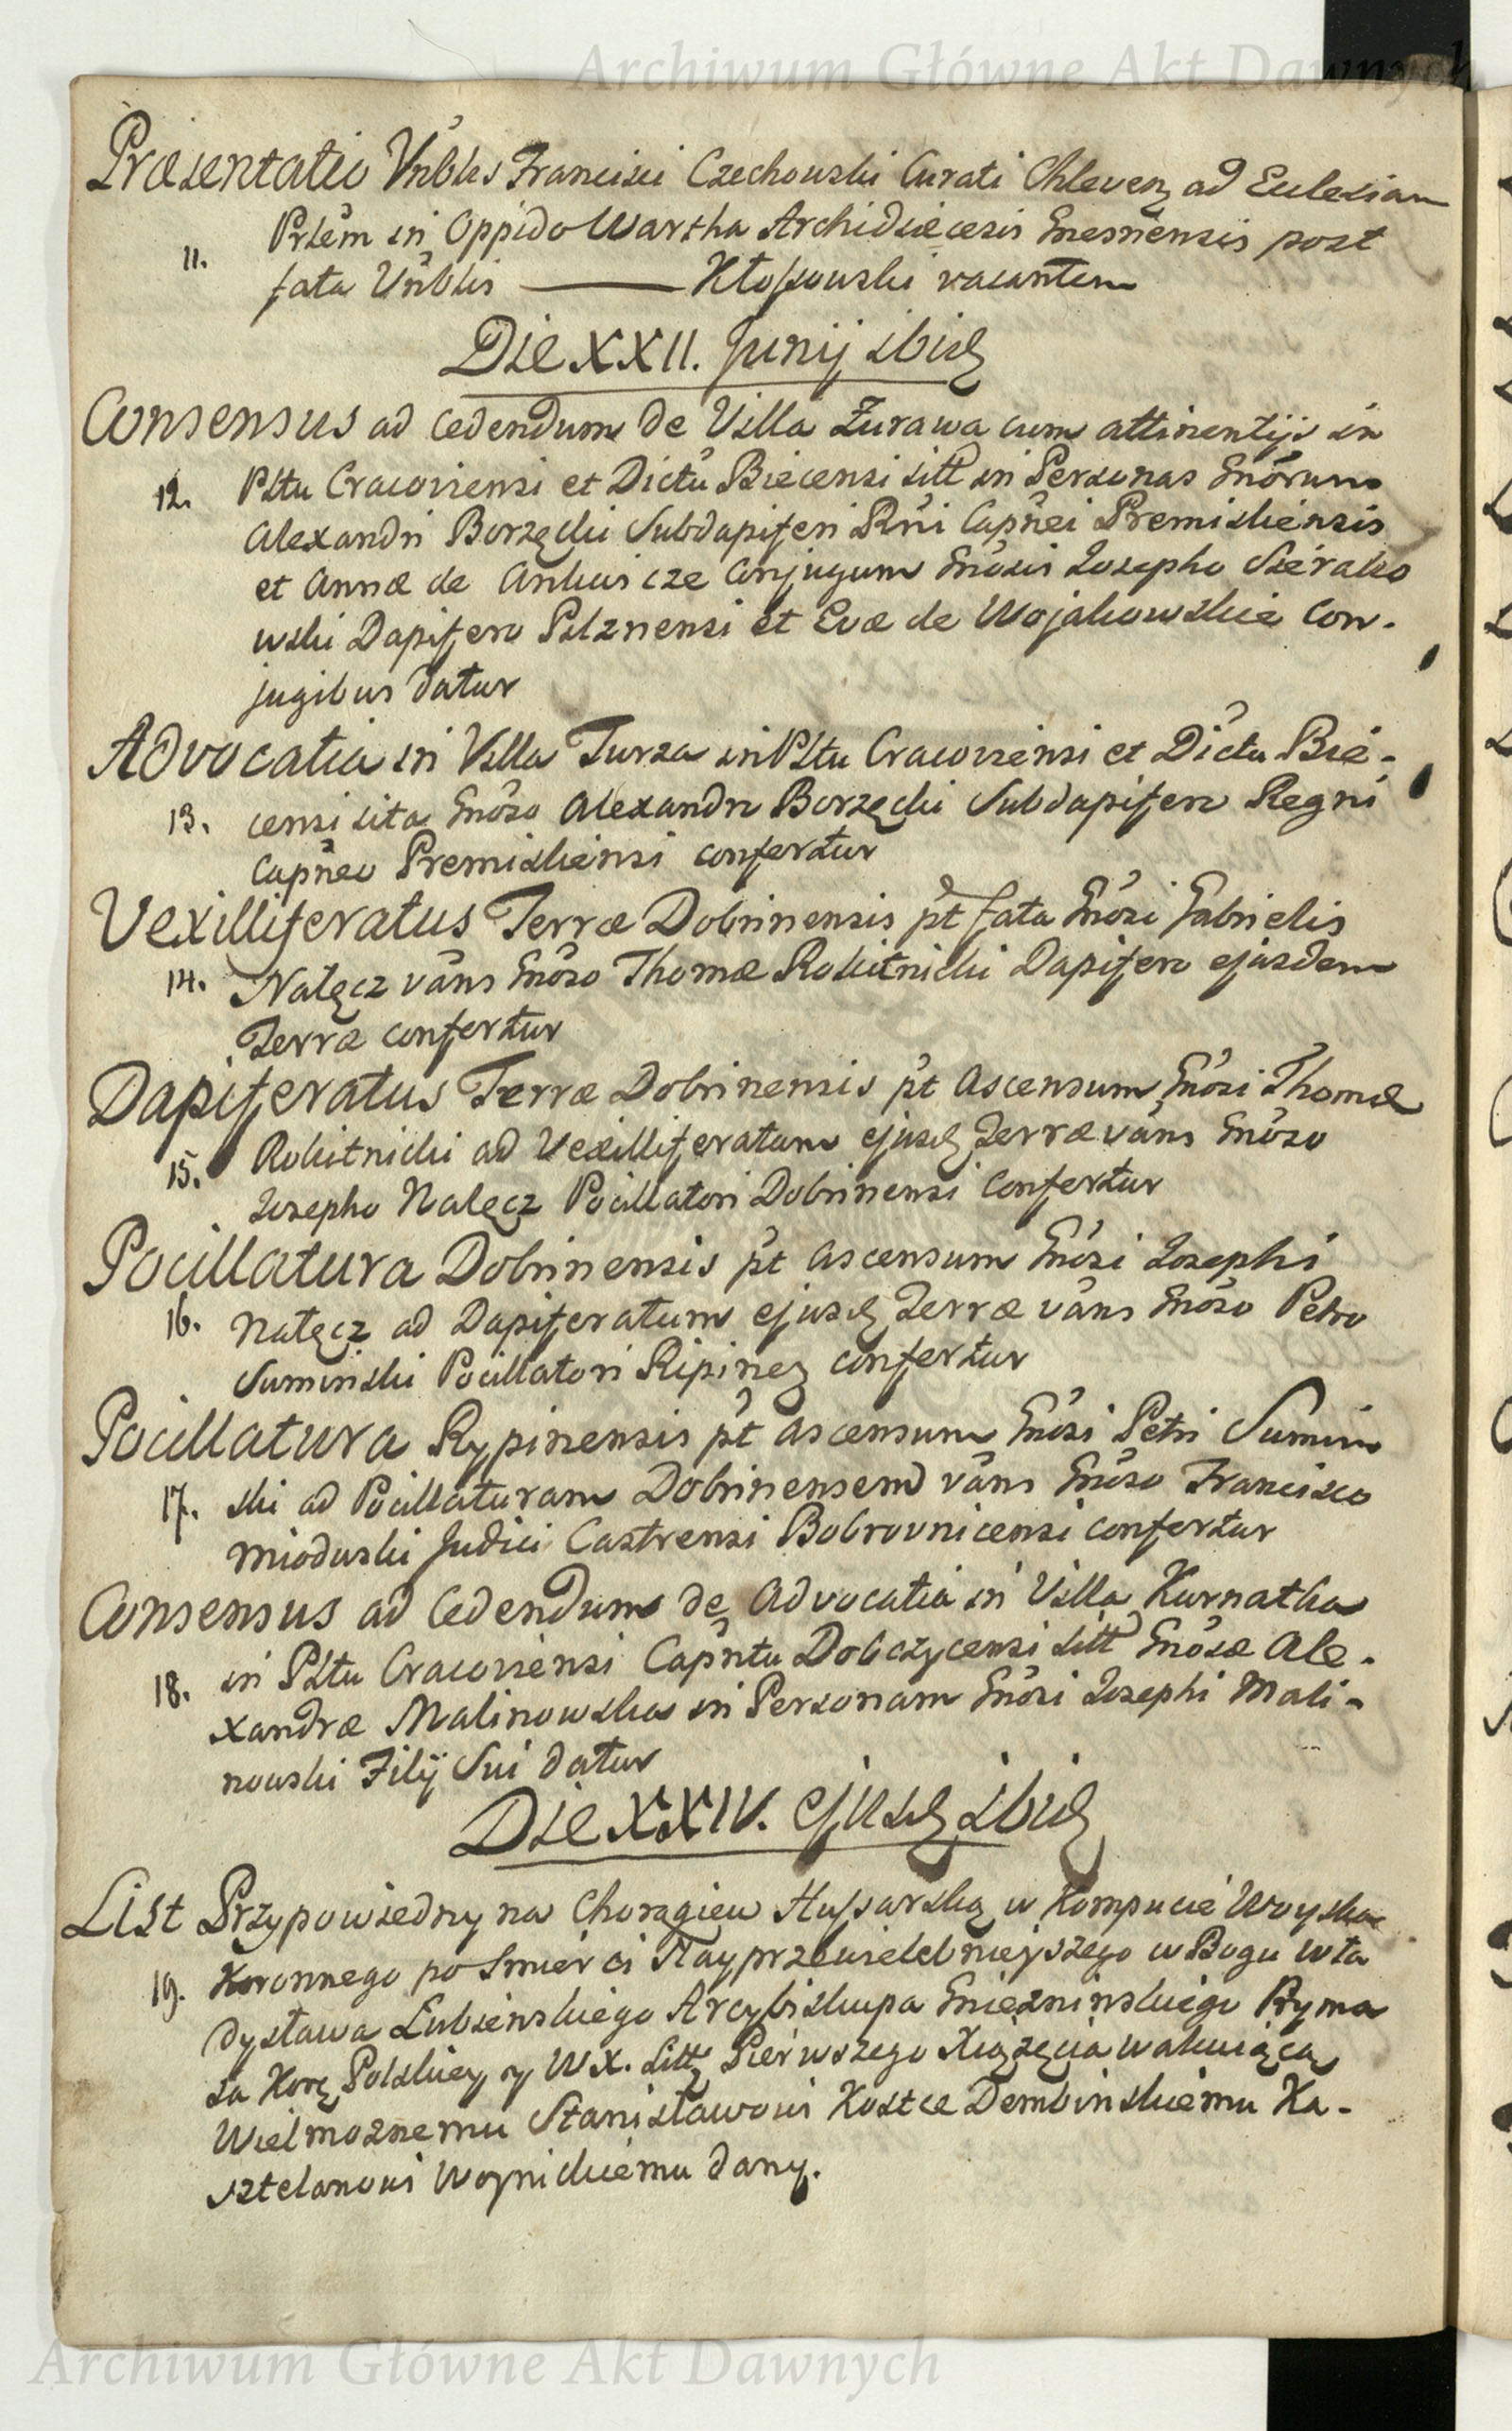 Archiwum Główne Akt Dawnych
Præsentatio Vnblis Francisci Czechowski Curati Chlevens ad Ecclesiam
11. Prlem in Oppido Wartha Archidiæcesis Gnesnensis post
fata Vnblis ——— Kłossowski vacantem
Die XXII. Junij ibid
Consensus ad cedendum de Villa Żurawa cum attinentijs in
12. Pltu Cracoviensi et Dictu Biecensi sitt in Personas Gnorum
Alexandri Borzęcki Subdapiferi Rni Capnei Premisliensis
et Annæ de Ankwicze Conjugum Gnosis Josepho Sierako
wski Dapifero Pilznensi et Evæ de Wojakowskie Con-
jugibus datur
Advocatia in Villa Turza in Pltu Cracoviensi et Dictu Bie-
13. censi sita Gnoso Alexandro Borzęcki Subdapifero Regni
Capneo Premisliensi confertur
Vexilliferatus Terræ Dobrinensis pt fata Gnosi Gabrielis
14. Nałęcz vans Gnoso Thomæ Rokitnicki Dapifero ejusdem
Terræ confertur
Dapiferatus Terræ Dobrinensis pt ascensum Gnosi Thomæ
15. Rokitnicki ad Vexilliferatum ejusd Terræ vans Gnoso
Josepho Nałęcz Pocillatori Dobrinensi confertur
Pocillatura Dobrinensis pt ascensum Gnosi Josephi
16. Nałęcz ad Dapiferatum ejusd Terræ vans Gnoso Petro
Suminski Pocillatori Ripinens confertur
Pocillatura Rypinensis pt ascensum Gnosi Petri Sumin
17. ski ad Pocillaturam Dobrinensem vans Gnoso Francisco
Mioduski Judici Castrensi Bobrovnicensi confertur
Consensus ad cedendum de Advocatia in Villa Kornatka
18. in Pltu Cracoviensi Capntu Dobczycensi sitt Gnosæ Ale-
xandræ Malinowska in Personam Gnosi Josephi Mali-
nowski Filij Sui datur
Die XXIV. ejusd ibid
List Przypowiedny na Chorągiew Hussarską w Kompucie Woyska
19. Koronnego po śmierci Nayprzewielebnieyszego w Bogu Wła
dysława Łubieńskiego Arcybiskupa Gnieznińskiego Pryma
sa Korę Polskiey y W X. Litt Pierwszego Xiążęcia wakuiącą
Wielmożnemu Stanisławowi Kostce Dembińskiemu Ka-
sztelanowi Woynickiemu dany.
Archiwum Główne Akt Dawnych